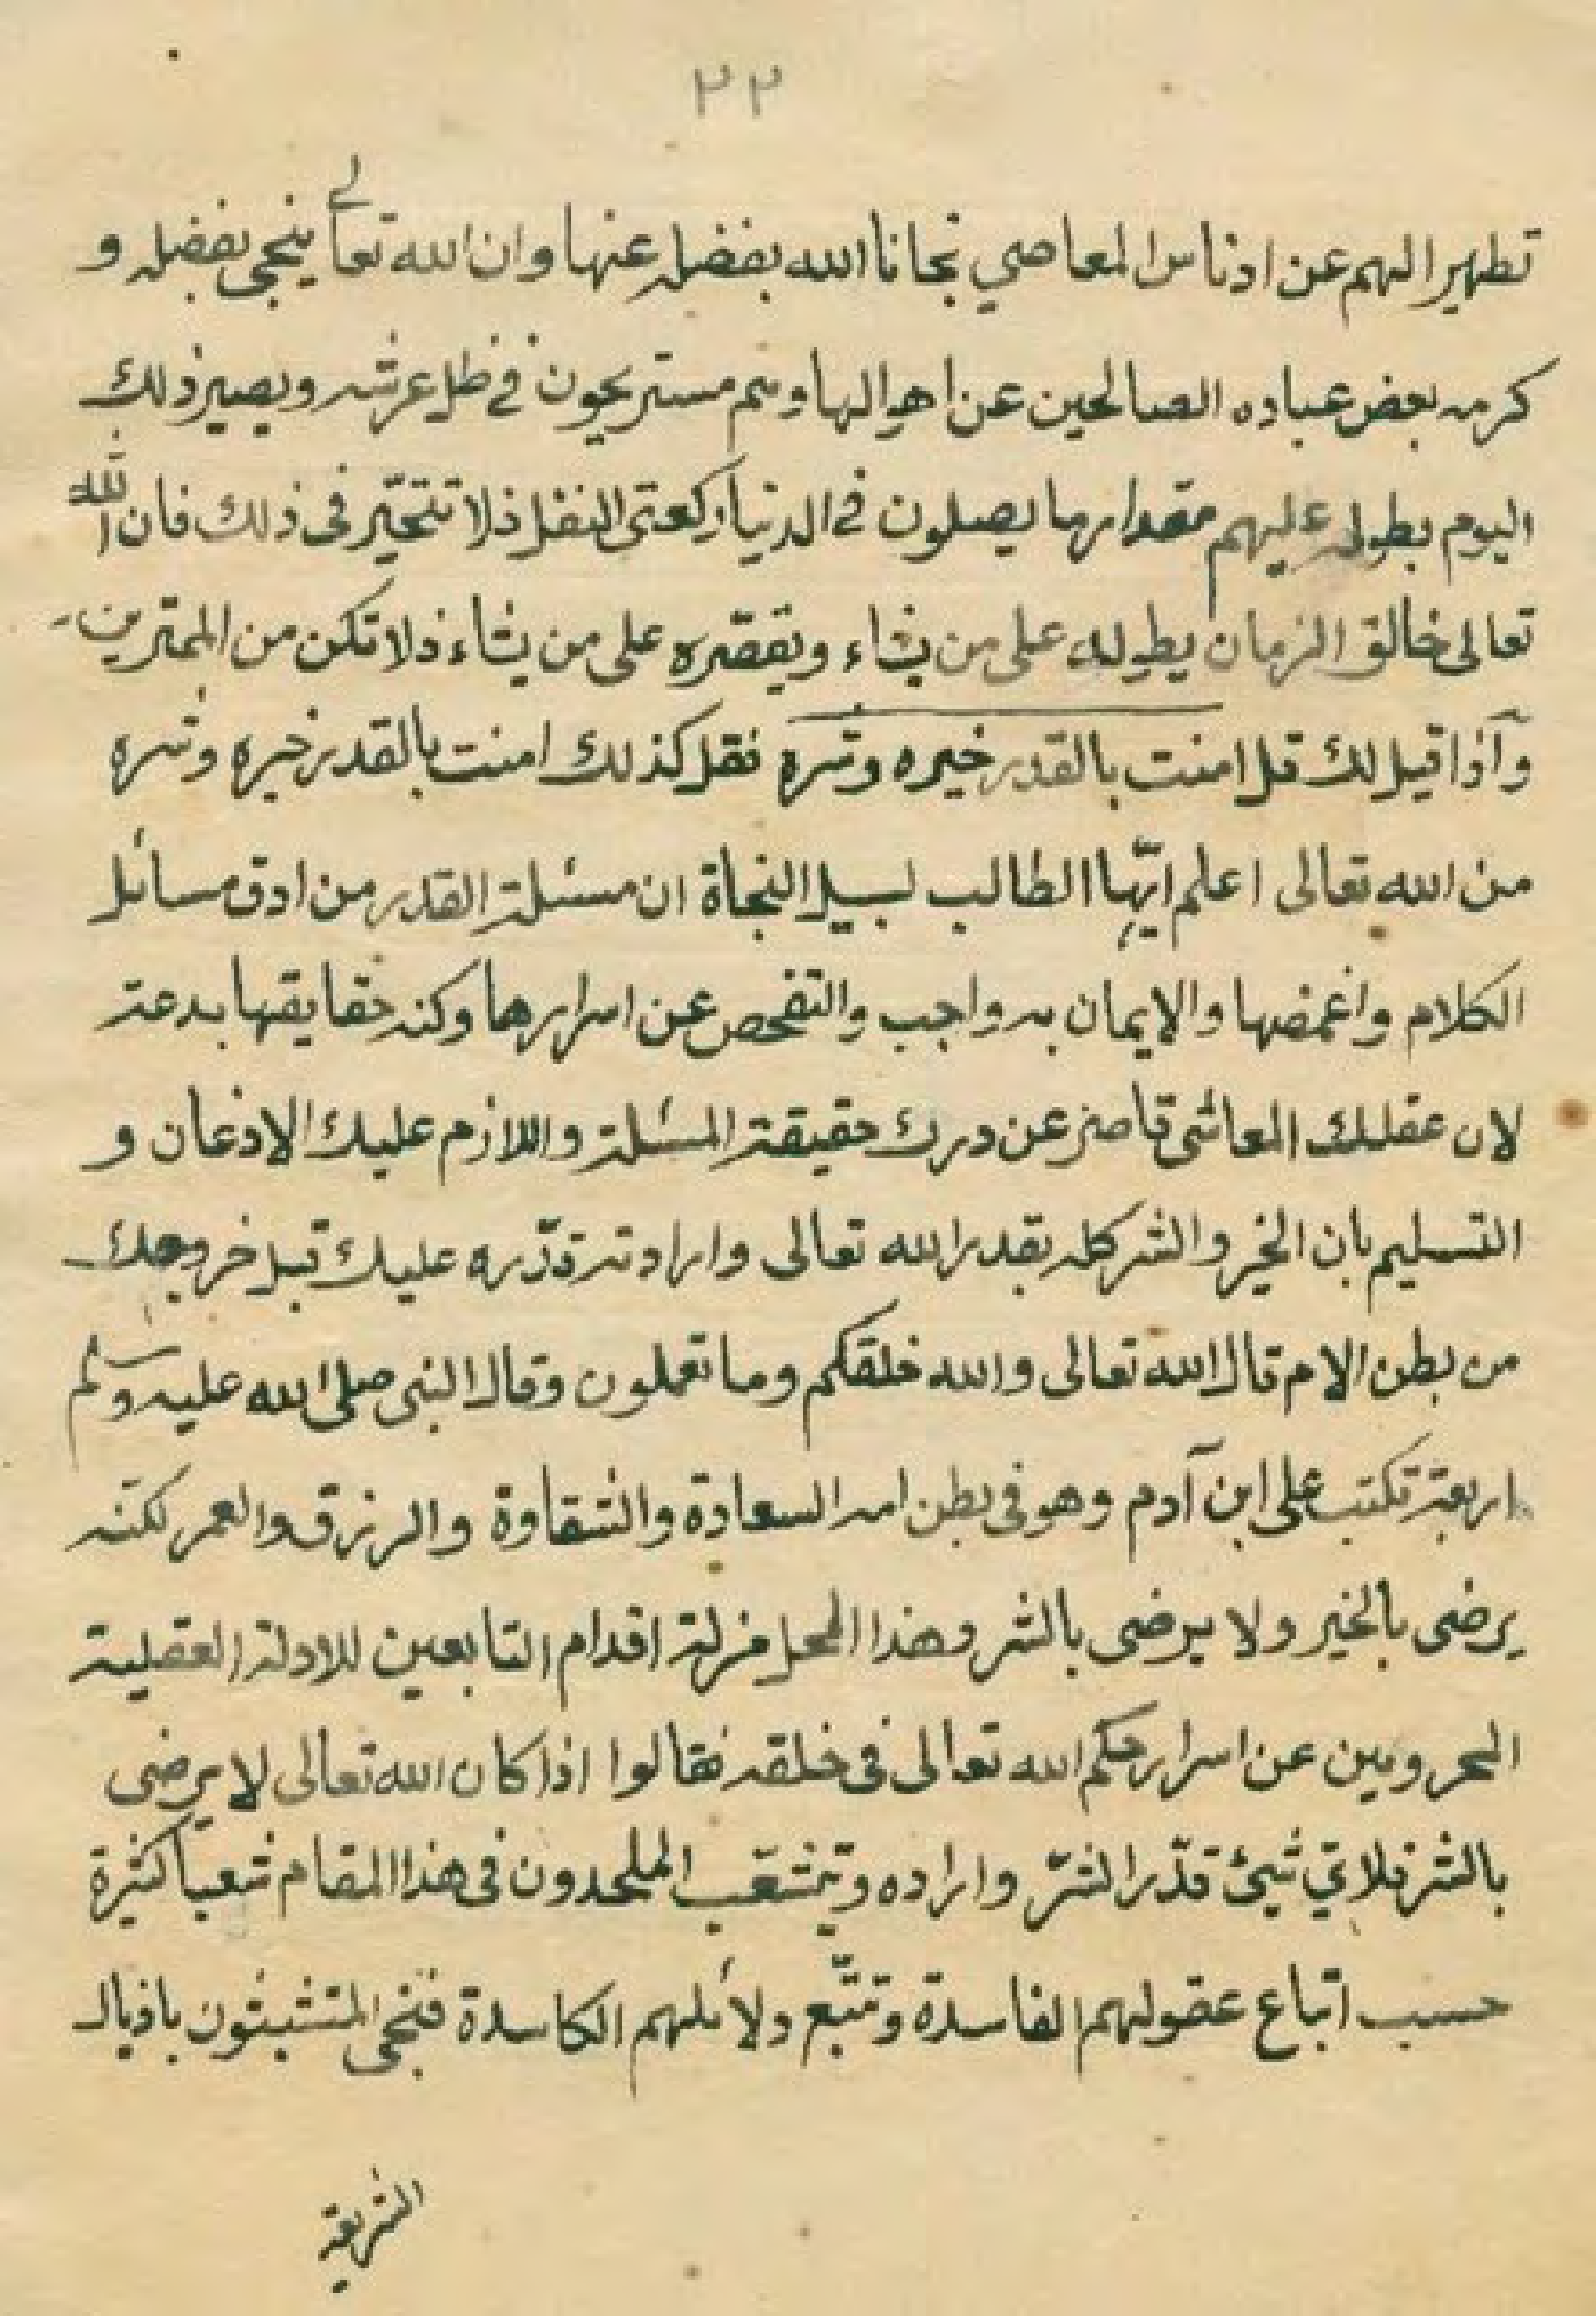 ٢٢
تطهيرا لهم عن ادناس المعاصي نجانا الله بفضله عنها وان الله تعالى ينجى بفضله و
كرمه بعض عباده الصالحين عن اهوالها وهم مستريحون في ظل عرشه ويصير ذلك
اليوم بطوله عليهم مقدار ما يصلون في الدنيا ركعتى النفل فلا تتحيّر فى ذلك فان الله
تعالى خالق الزمان يطوله على من يشاء ويقصّره على من يشاء فلا تكن من الممترين
وآذا قيل لك قل امنت بالقدر خيره وشره فقل كذلك امنت بالقدر خيره وشره
من الله تعالى اعلم ايّها الطالب لسبيل النجاة ان مسئلة القدر من ادق مسائل
الكلام واغمضها والايمان به واجب والتفحص عن اسرارها وكنه حقايقها بدعة
لان عقلك المعاشى قاصر عن درك حقيقة المسئلة واللازم عليك الاذعان و
التسليم بان الخير والشر كله بقدر الله تعالى وارادته قدّره عليك قبل خروجك
من بطن الام قال الله تعالى والله خلقكم وما تعملون وقال النبى صلى الله عليه وسلم
اربعة تكتب على ابن آدم وهو فى بطن امه السعادة والشقاوة والرزق والعمر لكنه
يرضى بالخير ولا يرضى بالشر وهذا المحل مزلة اقدام التابعين للادلة العقلية
المحرومين عن اسرار حكم الله تعالى فى خلقه فقالوا اذا كان الله تعالى لا يرضى
بالشر فلاي شيئ قدّر الشرّ واراده وتشعّب الملحدون فى هذا المقام شعبا كثيرة
حسب اتباع عقولهم الفاسدة وتتبّع دلائلهم الكاسدة فنجى المتشبثون باذيال
الشريعة